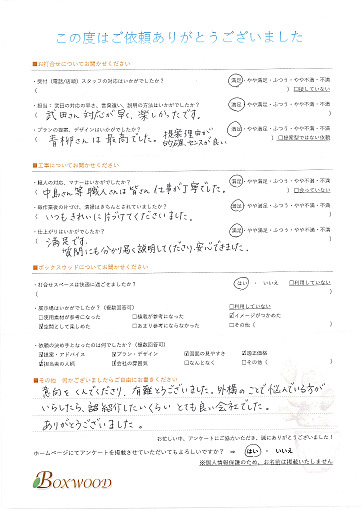 この度はご依頼ありがとうございました
■お打合せについてお聞かせください
・受付（電話/店頭）スタッフの対応はいかがでしたか？ 満足・やや満足・ふつう・やや不満・不満
（ ）□接していない
・担当： 武田の対応の早さ、言葉遣い、説明の方法はいかがでしたか？ 満足・やや満足・ふつう・やや不満・不満
（ 武田さん対応が早く、楽しかったです。 ）
・プランの提案、デザインはいかがでしたか？ 満足・やや満足・ふつう・やや不満・不満
（ 青柳さんは最高でした。 提案理由が的確、センスが良い ）□提案型ではない依頼
■工事についてお聞かせください
・職人の対応、マナーはいかがでしたか？ 満足・やや満足・ふつう・やや不満・不満
（ 中島さん等職人さんは皆さん仕事が丁寧でした。 ）□会っていない
・毎作業後の片づけ、清掃はきちんとされていましたか？ 満足・やや満足・ふつう・やや不満・不満
（ いつもきれいに片づけてくださいました。 ）
・仕上がりはいかがでしたか？ 満足・やや満足・ふつう・やや不満・不満
（ 満足です。
質問にも分かり易く説明してくださり、安心できました。 ）
■ボックスウッドについてお聞かせください
・お台せスペースは快適に過ごせましたか？ はい ・ いいえ □利用していない
（ ）
・展示場はいかがでしたか？（複数回答可） □利用していない
□使用素材が参考になった □植栽が参考になった ☑イメージがつかめた
☑空間として楽しめた □あまり参考にならなかった □その他（ ）
・依頼の決め手となったのは何でしたか？（複数回答可）
☑提案・アドバイス ☑プラン・デザイン ☑図面の見やすさ ☑適正価格
☑担当者の人柄 ☑会社の雰囲気 □なんとなく □その他（ ）
■その他 何かございましたらご自由にお書きください
意向をくんでくださり、有難うございました。外構のことで悩んでいる方が
いらしたら、ご紹介したいくらい とても良い会社でした。
ありがとうございました。
お忙しい中、アンケートにご協力いただき、誠にありがとうございました！
ホームページにてアンケートを掲載させていただいてもよろしいですか？ ⇒ はい ・ いいえ
※個人情報保護のため、お名前は掲載いたしません
BOXWOOD